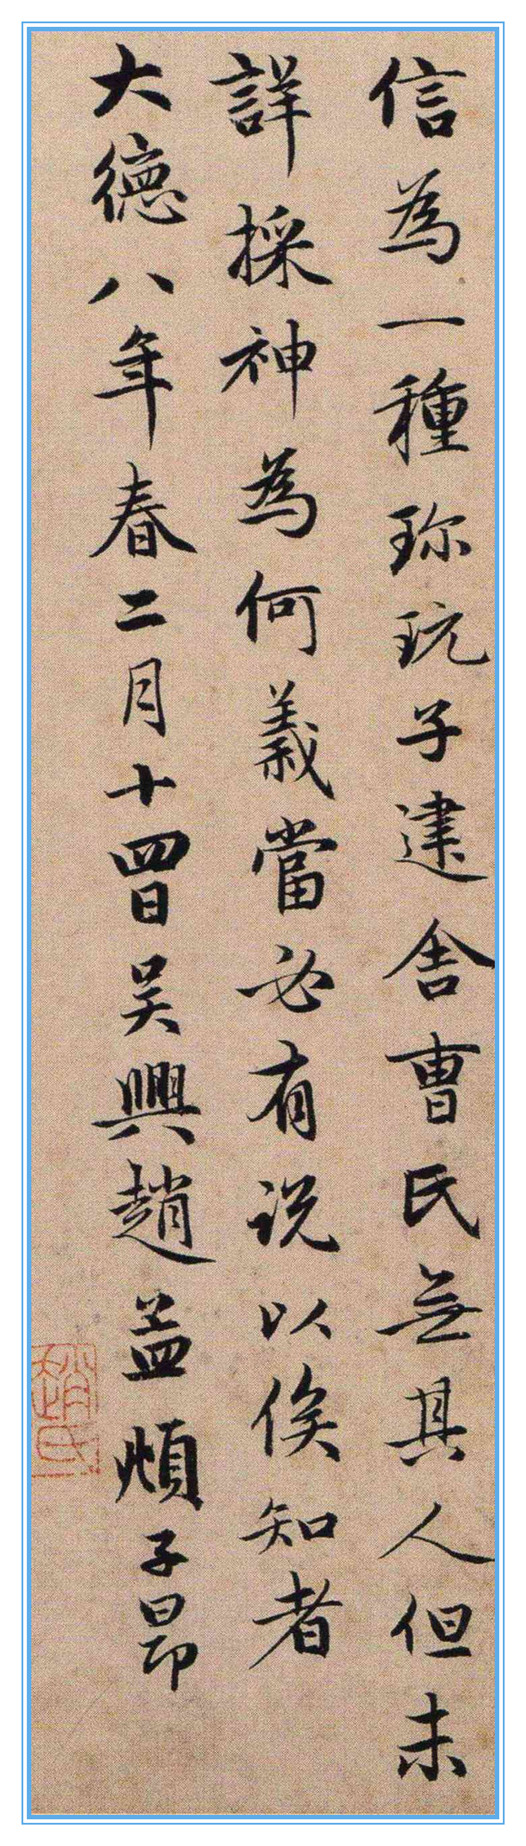 信為一種珎玩子建舍曹氏无其人但未
詳採神為何義當必有说以俟知者
大德八年春二月十四日吴興趙孟頫子昂
趙氏